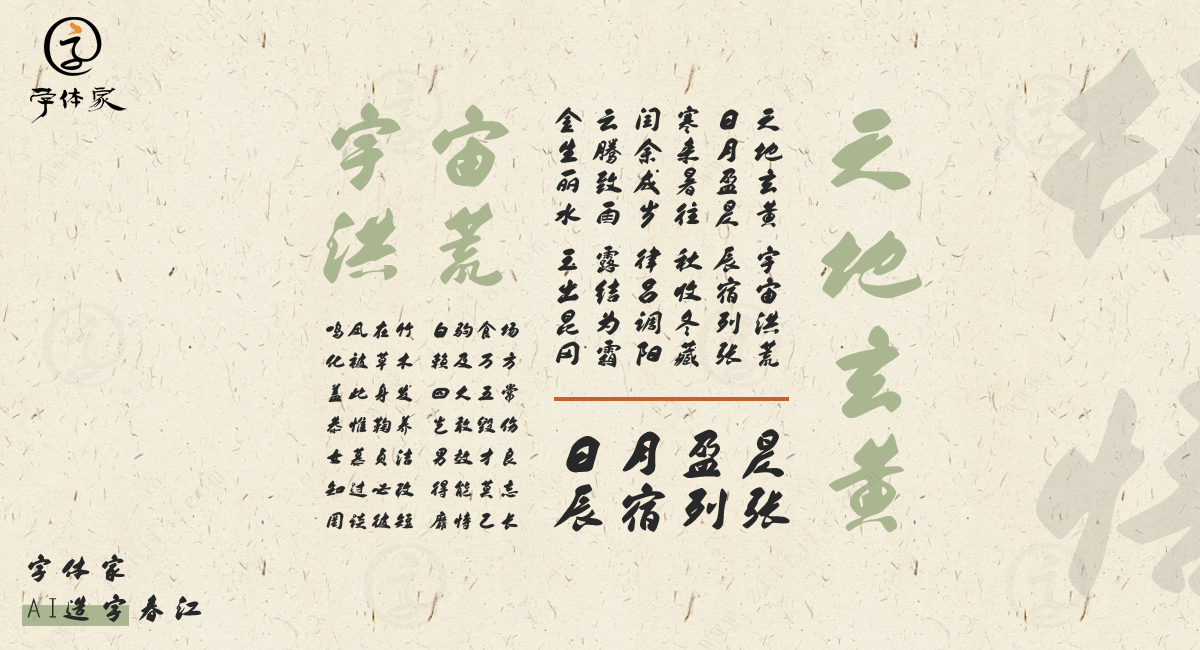 字体家
天地玄黄
宇宙
洪荒
天地玄黄 宇宙洪荒
日月盈昃 辰宿列张
寒来暑往 秋收冬藏
闰余成岁 律吕调阳
云腾致雨 露结为霜
金生丽水 玉出昆冈
日月盈昃
辰宿列张
鸣凤在竹 白驹食场
化被草木 赖及万方
盖此身发 四大五常
恭惟鞠养 岂敢毁伤
女慕贞洁 男效才良
知过必改 得能莫忘
罔谈彼短 靡恃己长
字体家
AI造字春江